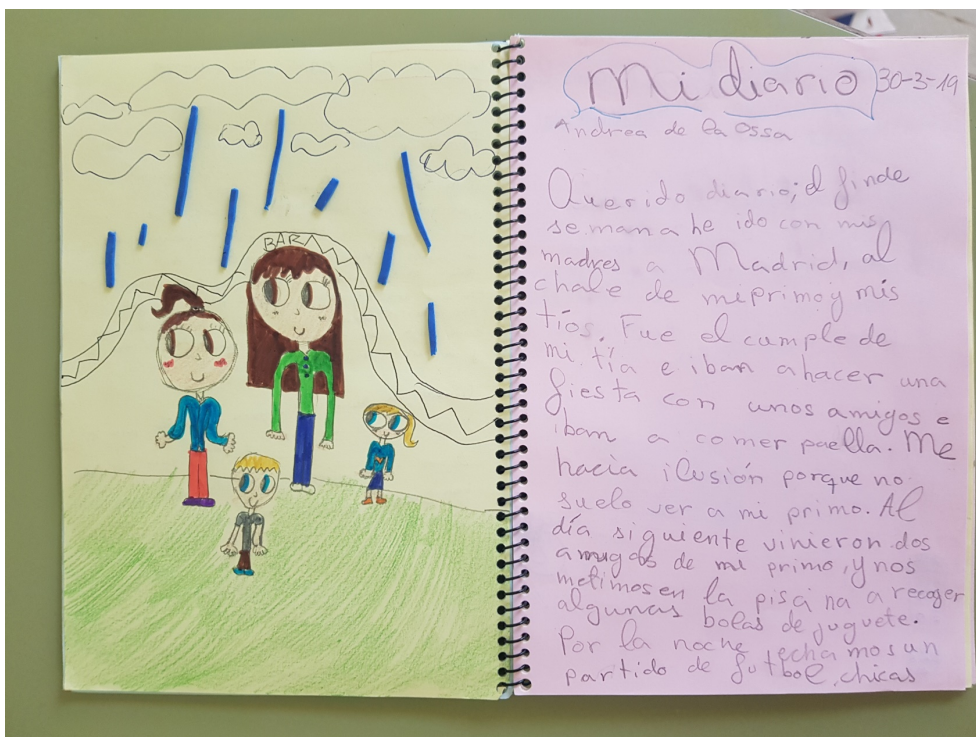 BAR
Mi diario 30-3-19
Andrea de la Ossa
Querido diario; el finde
semana he ido con mis
madres a Madrid, al
chale de mi primo y mis
tíos. Fue el cumple de
mi tía e iban a hacer una
fiesta con unos amigos e
iban a comer paella. Me
hacia ilusión porque no
suelo ver a mi primo. Al
día siguiente vinieron dos
amigos de mi primo, y nos
metimos en la piscina a recoger
algunas bolas de juguete.
Por la noche echamos un
partido de futbol, chicas